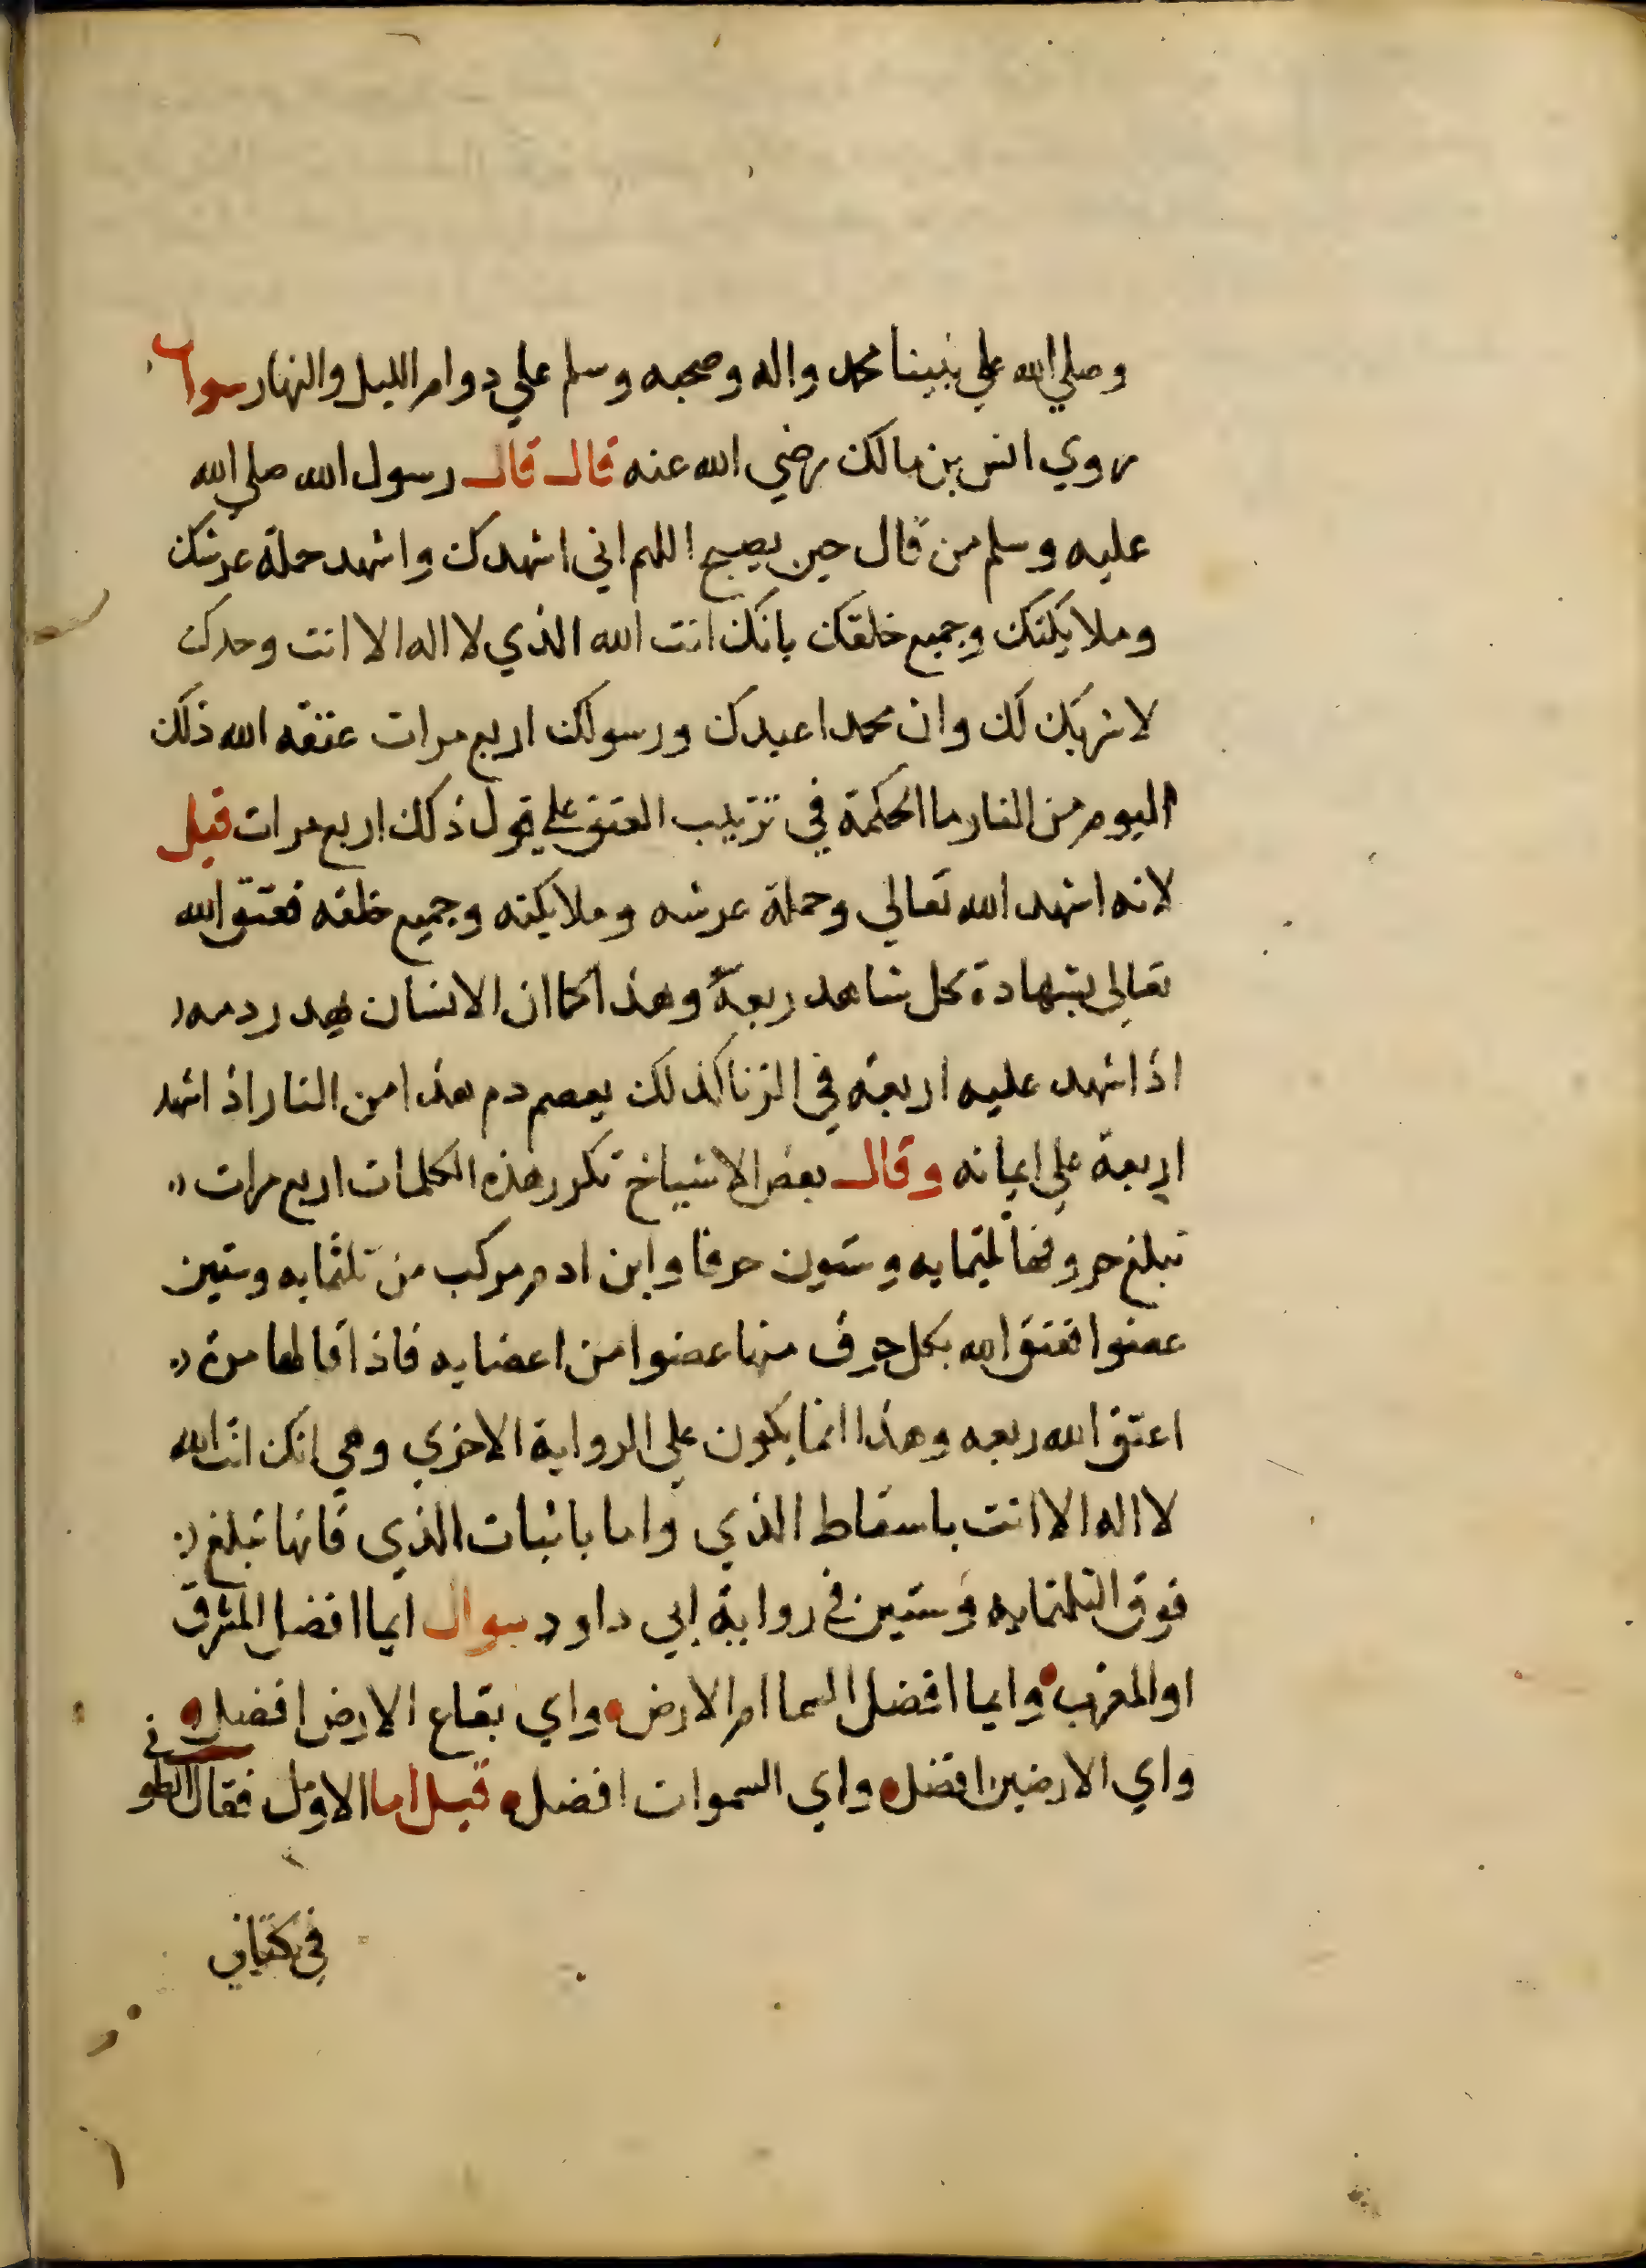 وصلي الله علي نبينا محمد واله وصحبه وسلم علي دوام الليل والنهار سوال
روي انس بن مالك رضي الله عنه قال قال رسول الله صلي الله
عليه وسلم من قال حين يصبح اللهم اني اشهدك واشهد حملة عرشك
وملايكتك وجميع خلقك بانك انت الله الذي لا اله الا انت وحدك
لا شريك لك وان محمدا عبدك ورسولك اربع مرات عتقه الله ذلك
اليوم من النار ما الحكمة في ترتيب العتق علي قول ذلك اربع مرات قيل
لانه اشهد الله تعالي وحملة عرشه وملايكته وجميع خلقه فعتق الله
تعالي بشهادة كل شاهد ربعه وهذا كما ان الانسان يهدر دمه
اذا شهد عليه اربعة في الزنا كذلك يعصم دم هذا من النار اذ اشهد
اربعة علي ايمانه وقال بعض الاشياخ تكرر هذه الكلمات اربع مرات
تبلغ حروفها ثلثمايه وستون حرفا وابن ادم مركب من ثلثمايه وستين
عضوا فعتق الله بكل حرف منها عضوا من اعضايه فاذا قالها مرة
اعتق الله ربعه وهذا انما يكون علي الرواية الاخري وهي انك انت الله
لا اله الا انت باسقاط الذي واما باثبات الذي فانها تبلغ
فوق الثلثمايه وستين في رواية ابي داود سوال ايما افضل المشرق
او المغرب وايما افضل السما ام الارض واي بقاع الارض افضل
واي الارضين افضل واي السموات افضل قيل اما الاول فقال الطوفي
في كتابي